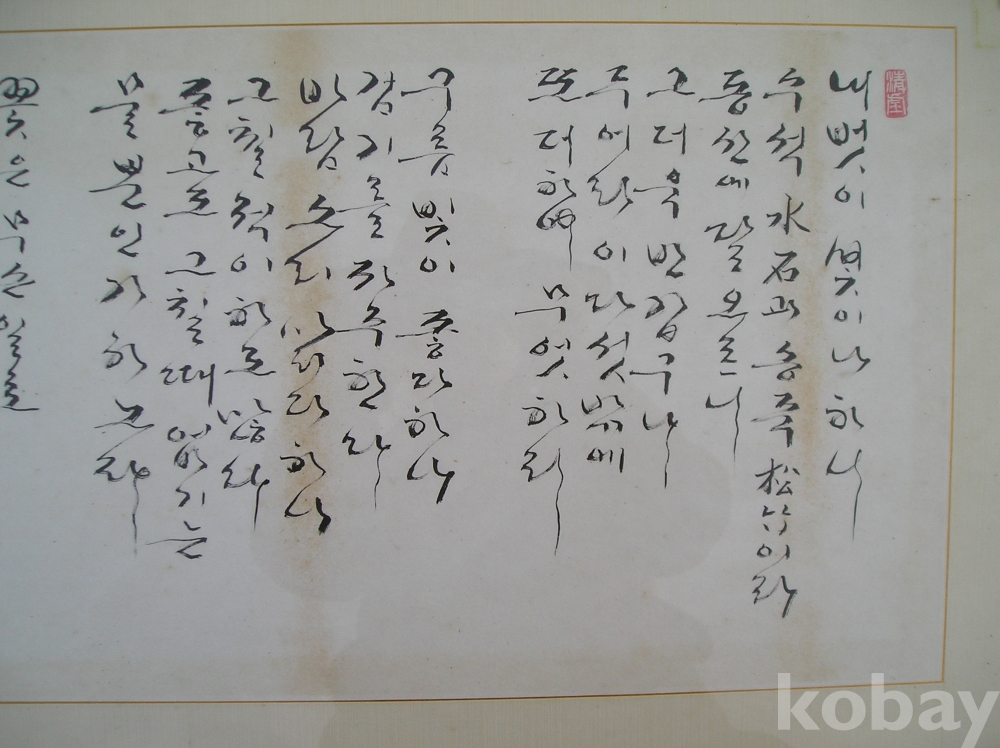 내 벗이 몇이나 하니
수석 水石과 송죽 松竹이라
동산에 달 오르니
그 더욱 반갑구나
두어라 이 다섯 밖에
또 더하여 무엇하리
구름 빛이 좋다하나
검기를 자주 한다
바람 소리 맑다 하나
그칠 적이 하도 많다
좋고도 그칠 때 없기는
물뿐인가 하노라
꽃은 무슨 일로
kobay